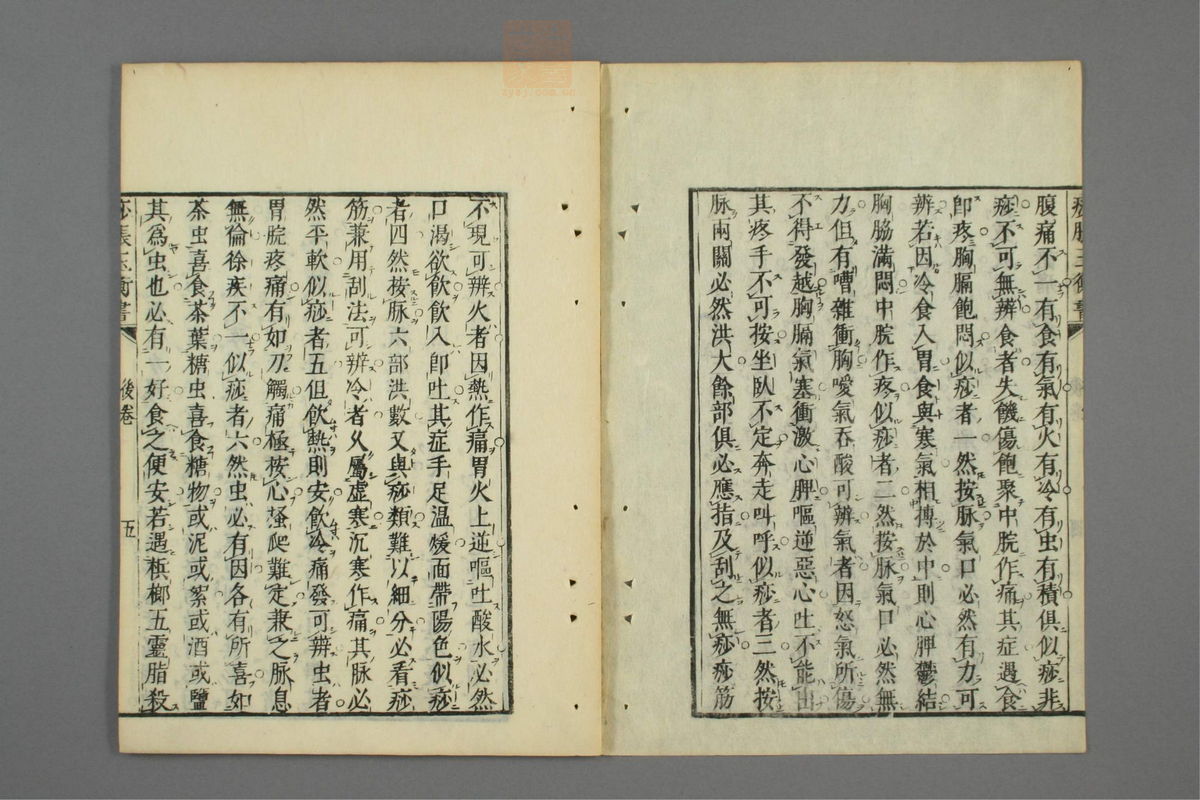 腹痛不一有食有氣有火有冷有虫有積俱似痧非
痧不可無辨食者失饑傷飽聚中脘作痛其症遇食
卽疼胸膈飽悶似痧者一然按脉氣口必然有力可
辨若因冷食入胃食與寒氣相搏於中則心脾鬱結
胸脇滿悶中脘作疼似痧者二然按脉氣口必然無
力但有嘈雜衝胸噯氣吞酸可辨氣者因怒氣所傷
不得發越胸膈氣塞衝激心脾嘔逆惡心吐不能出
其疼手不可按坐臥不定奔走叫呼似痧者三然按
脉兩關必然洪大餘部俱必應指及刮之無痧痧筋
不現可辨火者因熱作痛胃火上逆嘔吐酸水必然
口渴欲飲飲入卽吐其症手足温煖面帶陽色似痧
者四然按脉六部洪數又與痧類難以細分必看痧
筋兼用刮法可辨冷者久屬虛寒沉寒作痛其脉必
然平軟似痧者五但飲熱則安飲冷痛發可辨虫者
胃脘疼痛有如刀觸痛極按心搔爬難定兼之脉息
無倫徐疾不一似痧者六然虫必有因各有所喜如
茶虫喜食茶葉糖虫喜食糖物或泥或絮或酒或鹽
其爲虫也必有一好食之便安若遇梹榔五靈脂殺
痧脹玉衡書
後卷
五